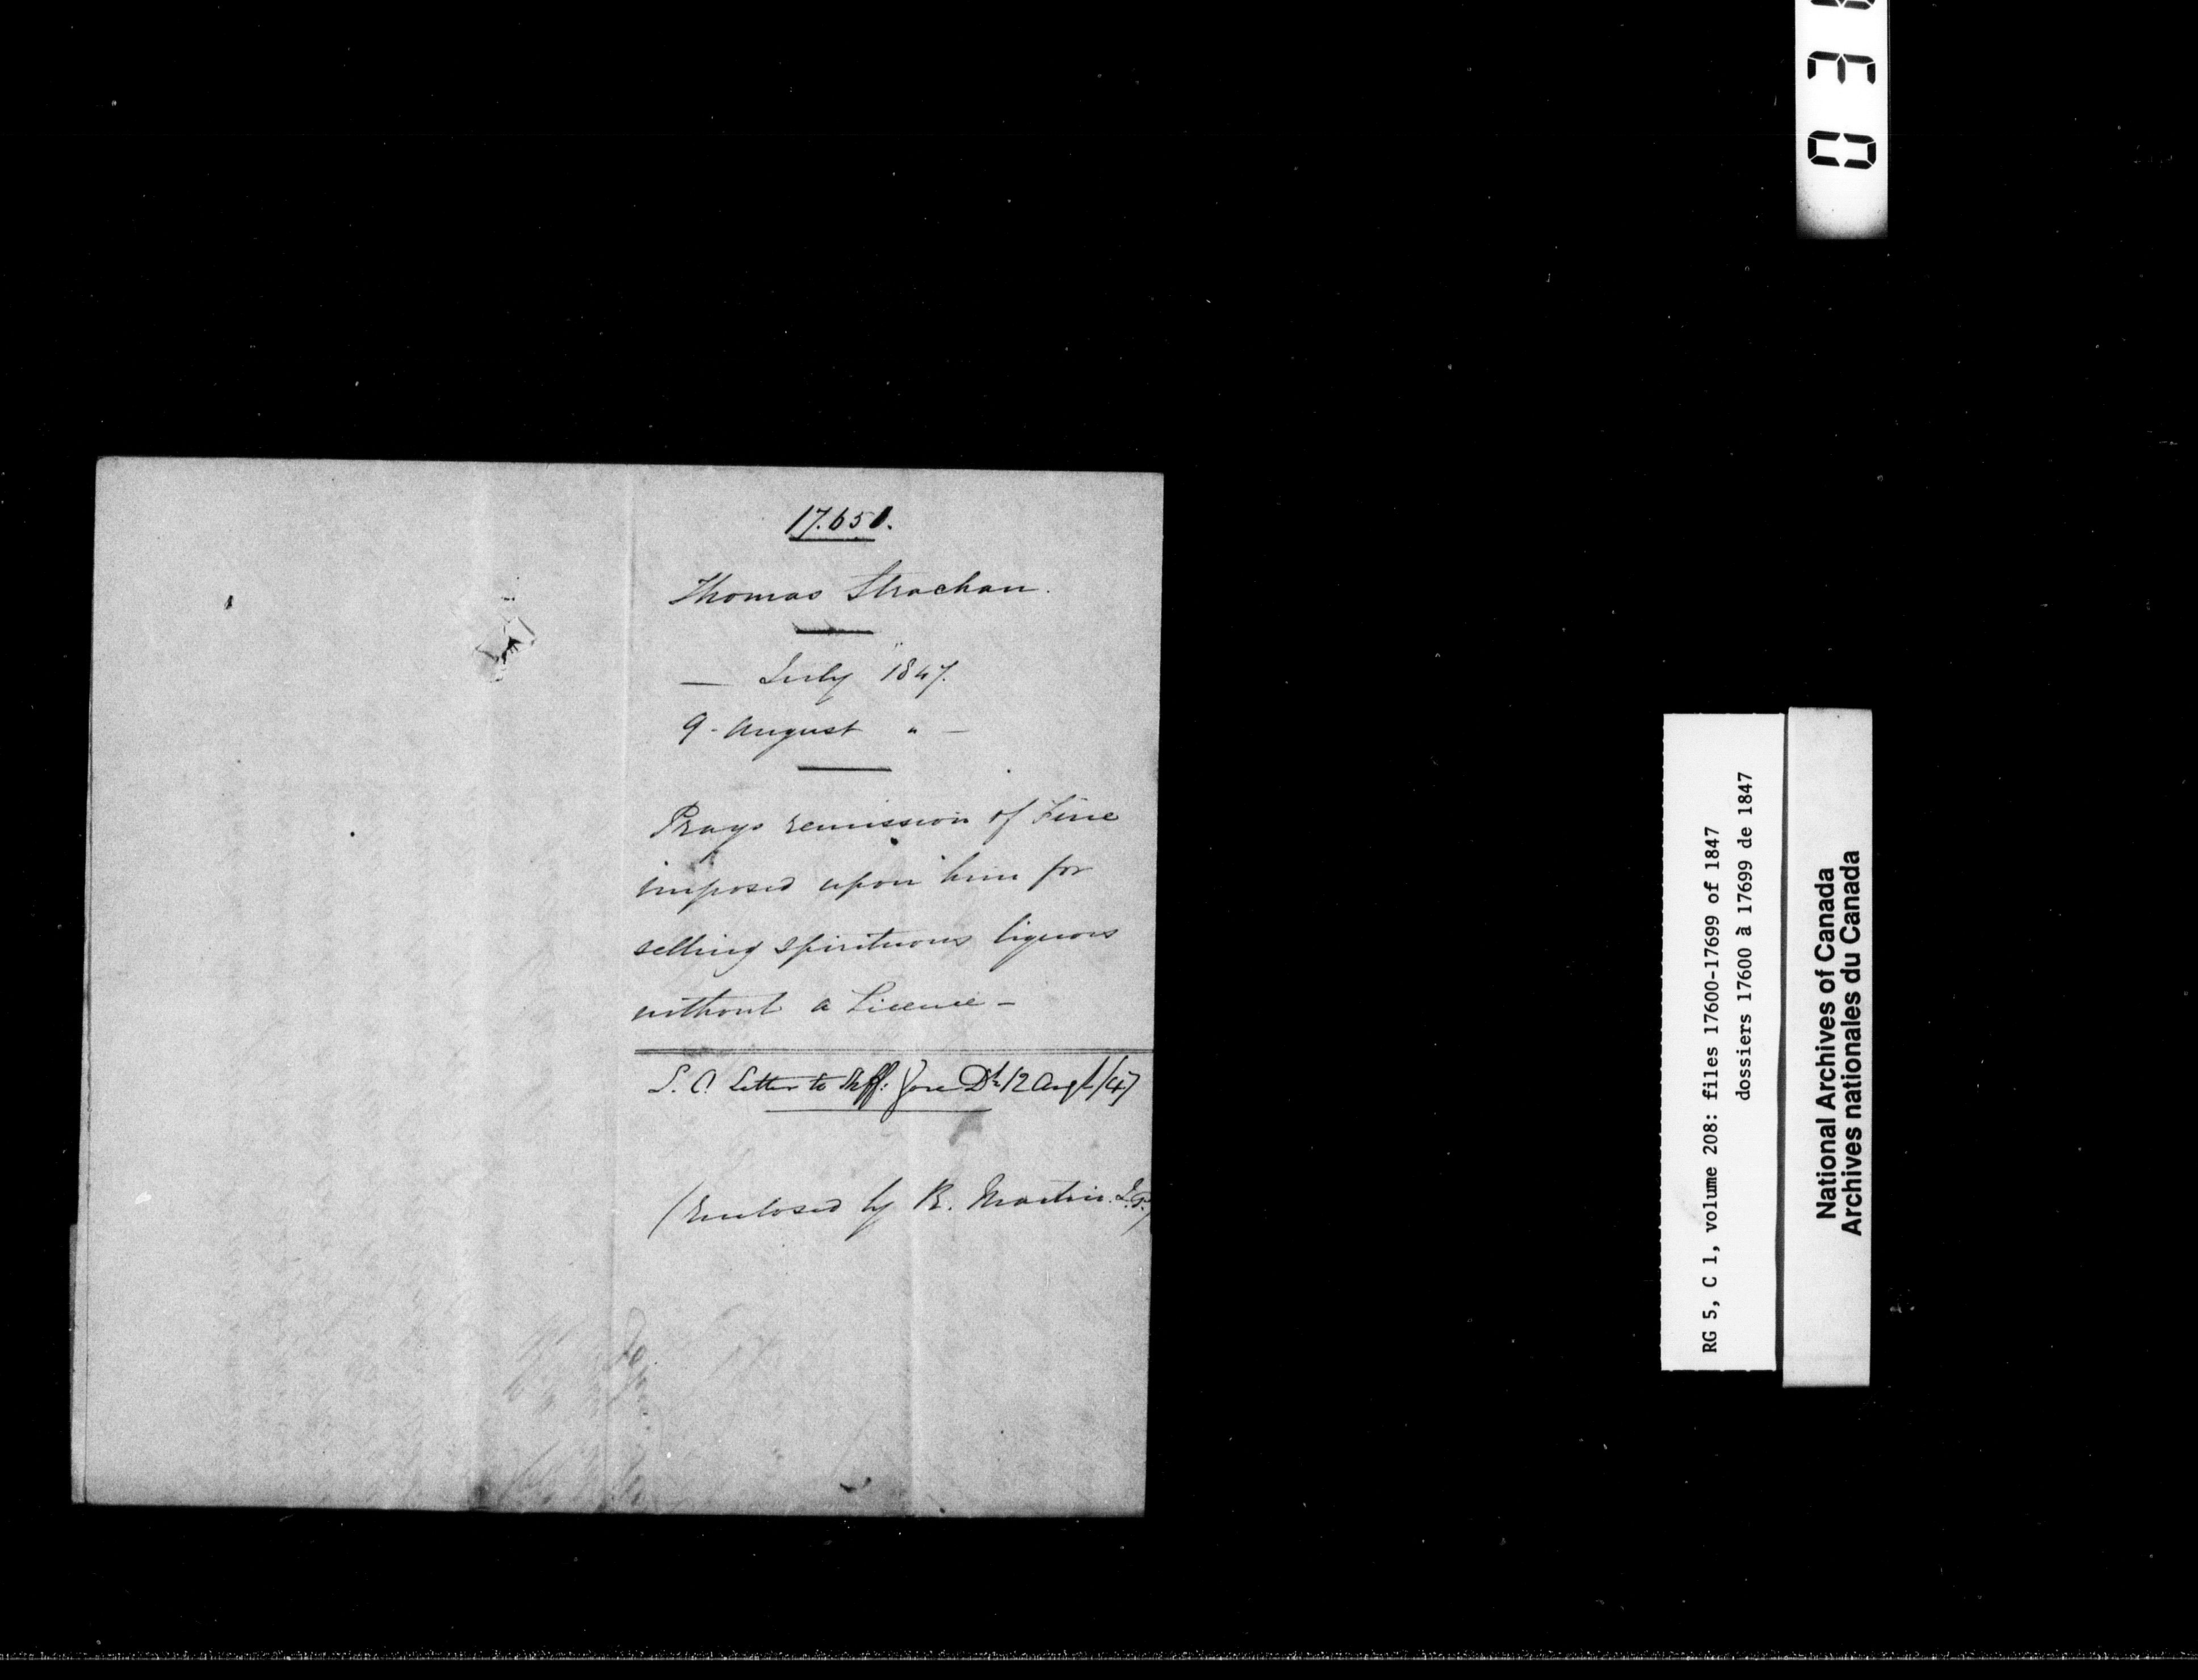 17.651.
Thomas Strachan.
— July 1847.
9 - August " —
Prays remission of Fine
imposed upon him for
selling spirituous liquors
without a Licence —
L. C. Letter to Gore Dt. 12 Augt/47
(Enclosed by R. Martin.
RG 5, C 1, volume 208: files 17600-17699 of 1847
dossiers 17600 à 17699 de 1847
National Archives of Canada
Archives nationales du Canada
03